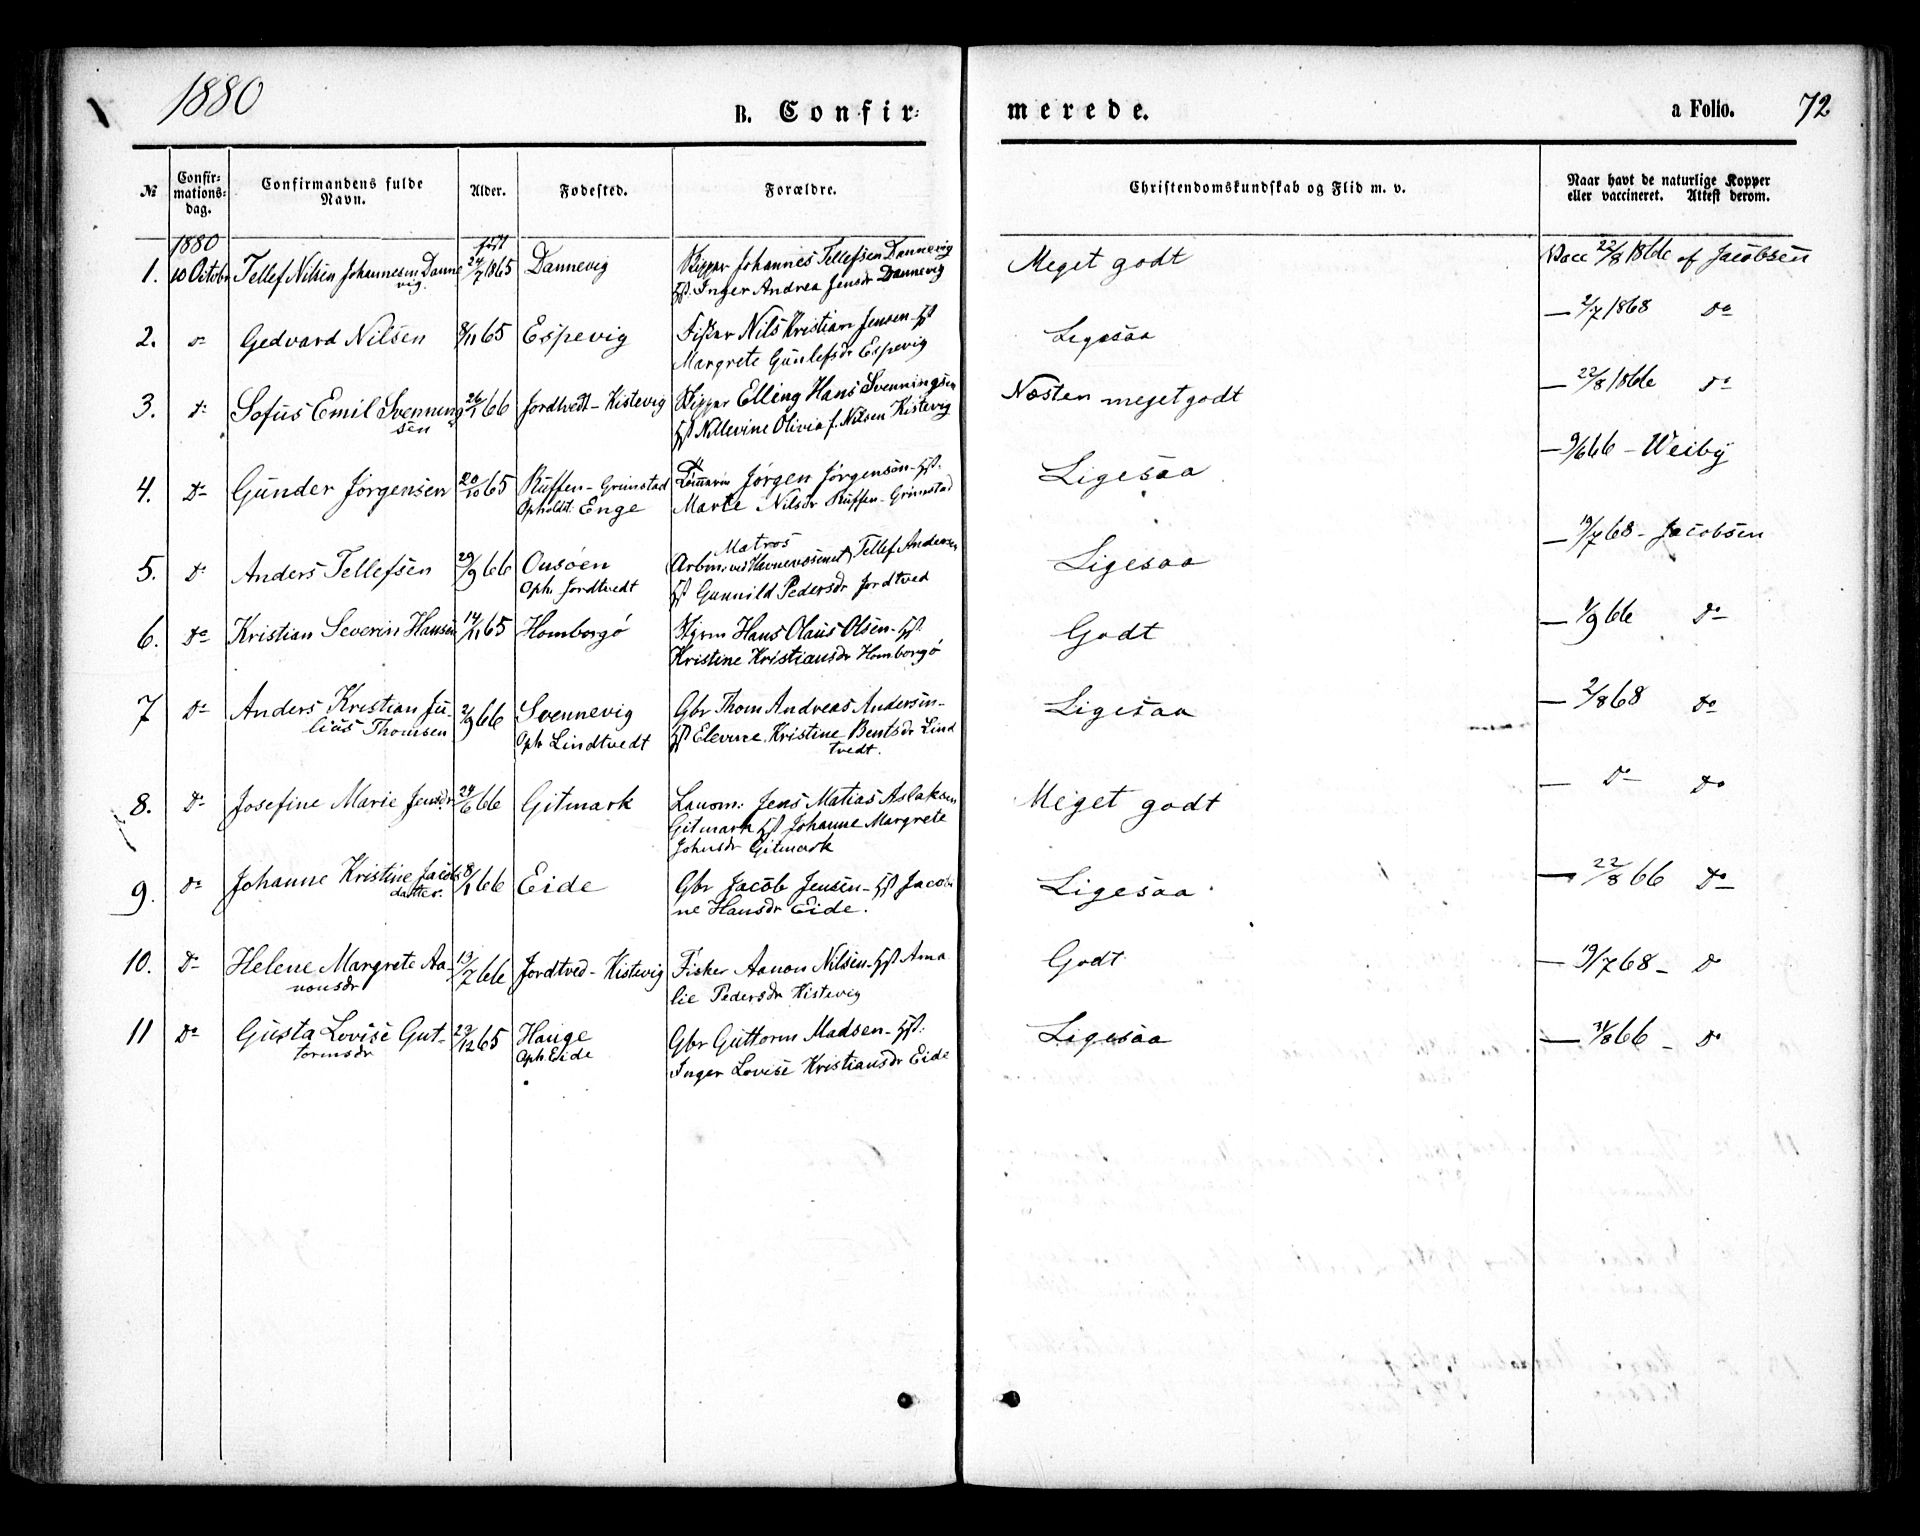 1880
B. Confir-
merede.
a Folio. 72
№
Confir-
mations-
dag.
Confirmandens fulde
Navn.
Alder.
Fødested.
Forældre.
Christendomskundskab og Flid m. v.
Naar havt de naturlige Kopper
eller vaccineret. Attest derom.
1880
født
1. 10 Octobr Tellef Nilsen Johannesen Danne 24/7 1865 Dannevig Skipper Johannes Tellefsen Dannevig Meget godt Vacc 22/8 1866 af Jacobsen
vig. Hst. Inger Andrea Jensdr Dannevig
2. Do Gedvard Nilsen 8/11 65 Espevig Fisker Nils Kristian Jensen - Hst Ligesaa — 2/7 1868 Do
Margrete Gunlefsdr Espevig
3. Do Sofus Emil Svennings 26/1 66 Jordtvedt - Kistevig Skipper Elling Hans Svenningsen Næsten meget godt — 22/8 1866 Do
sen Hst Nillevine Olivia f. Nilsen Kistevig
4. Do Gunder Jørgensen 20/10 65 Ruffen - Grimstad Jørgen Jørgensen - Hst. Ligesaa — 9/6 66 - Weiby
Opholdst. Enge Marte Nilsdr Ruffen - Grimstad
Matros
5. Do Anders Tellefsen 29/9 66 Ousøen Arbm: ved Havnevæsenet Tellef Andersen Ligesaa — 19/7 68 - Jacobsen
Oph. Jordtvedt Hst Gunnild Pedersdr Jordtved
6. Do Kristian Severin Hansen 14/11 65 Homborgø Styrm Hans Olaus Olsen - Hst. Godt — 1/9 66 Do
Kristine Kristiansdr Homborgø
7 Do Anders Kristian Ju- 2/9 66 Svennevig Gbr Thom Andreas Andersen - Ligesaa — 2/8 68 Do
lius Thomsen Oph Lindtvedt Hst Elevine Kristine Bentsdr Lind
tvedt.
8. Do Josefine Marie Jensdr 24/6 66 Gitmark Jens Matias Aslaksen Meget godt — Do Do
Gitmark Hst Johanne Margrete
Johnsdr Gitmark
9. Do Johanne Kristine Jacobs 8/1 66 Eide Gbr Jacob Jensen - Hst Jacobi Ligesaa — 22/8 66 Do
datter. ne Hansdr Eide.
10. Do Helene Margrete Aa- 13/7 66 Jordtved - Kistevig Fisker Aanon Nilsen - Hst Ama Godt — 19/7 68 - Do
nonsdr lie Pedersdr Kistevig
11 Do Gusta Lovise Gut- 29/12 65 Hauge Gbr Guttorm Madsen - Hst: Ligesaa — 11/8 66 - Do
tormsdr Oph Eide Inger Lovise Kristiansdr Eide